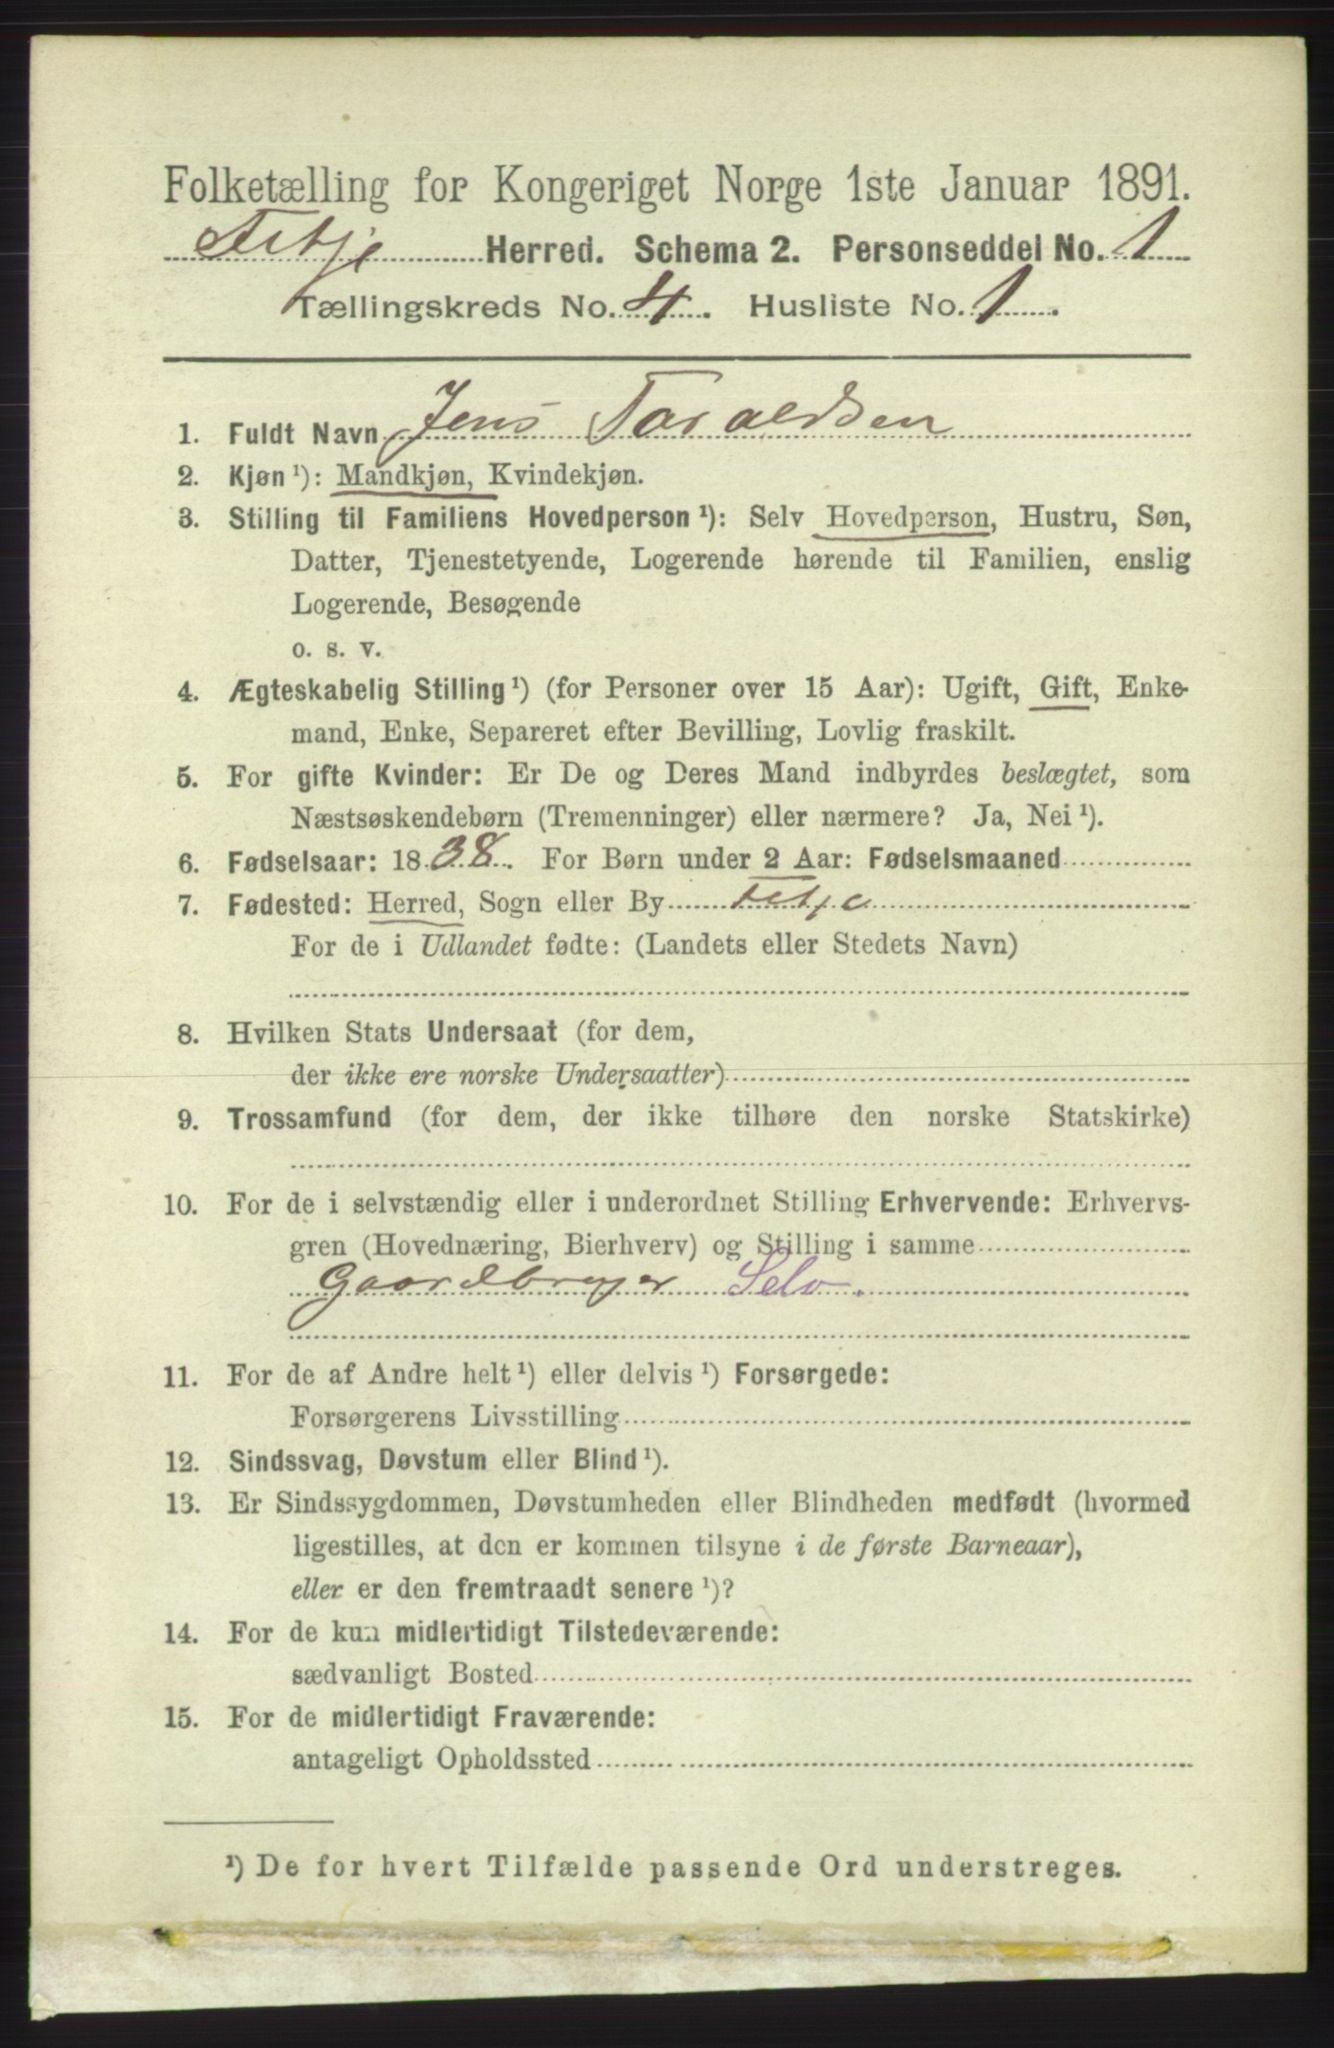 Folketælling for Kongeriget Norge 1ste Januar 1891.
Fitje Herred. Schema 2. Personseddel No. 1
Tællingskreds No. 4. Husliste No. 1.
1. Fuldt Navn Jens Taraldsen
2. Kjøn ¹): Mandkjøn, Kvindekjøn.
3. Stilling til Familiens Hovedperson ¹): Selv Hovedperson, Hustru, Søn,
Datter, Tjenestetyende, Logerende hørende til Familien, enslig
Logerende, Besøgende
o. s. v.
4. Ægteskabelig Stilling ¹) (for Personer over 15 Aar): Ugift, Gift, Enke-
mand, Enke, Separeret efter Bevilling, Lovlig fraskilt.
5. For gifte Kvinder: Er De og Deres Mand indbyrdes beslægtet, som
Næstsøskendebørn (Tremenninger) eller nærmere? Ja, Nei ¹).
6. Fødselsaar: 1838. For Børn under 2 Aar: Fødselsmaaned
7. Fødested: Herred, Sogn eller By Fitje
For de i Udlandet fødte: (Landets eller Stedets Navn)
8. Hvilken Stats Undersaat (for dem,
der ikke ere norske Undersaatter)
9. Trossamfund (for dem, der ikke tilhøre den norske Statskirke)
10. For de i selvstændig eller i underordnet Stilling Erhvervende: Erhvervs-
gren (Hovednæring, Bierhverv) og Stilling i samme
Gaardbruger Selv.
11. For de af Andre helt ¹) eller delvis ¹) Forsørgede:
Forsørgerens Livsstilling
12. Sindssvag, Døvstum eller Blind ¹).
13. Er Sindssygdommen, Døvstumheden eller Blindheden medfødt (hvormed
ligestilles, at den er kommen tilsyne i de første Barneaar),
eller er den fremtraadt senere ¹)?
14. For de kun midlertidigt Tilstedeværende:
sædvanligt Bosted
15. For de midlertidigt Fraværende:
antageligt Opholdssted
¹) De for hvert Tilfælde passende Ord understreges.